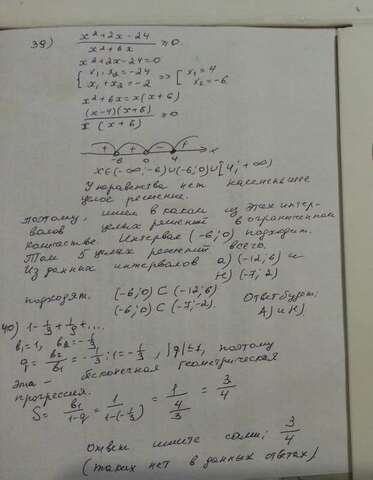 39) x²+2x-24 / x²+6x ≥0.
x²+2x-24=0
{ x₁·x₂=-24 => [ x₁=4
x₁+x₂=-2 x₂=-6
x²+6x=x(x+6)
(x-4)(x+6) / x(x+6) ≥0
+ -6 + 0 - 4 + x
x∈(-∞;-6)∪(-6;0)∪[4;+∞)
У неравенства нет наименьшее
целое решение.
Поэтому, ищем в каком из этих интер-
валов целых решений в ограниченном
количестве. Интервал (-6;0) подходит.
Там 5 целых решений всего.
Из данных интервалов а) (-12;6) и
н) (-7;2)
подходят. (-6;0)⊂(-12;6) Ответ будет:
(-6;0)⊂(-7;-2). А) и Н)
40) 1-1/3+1/9+...
b₁=1, b₂=-1/3
q=b₂/b₁=-1/3:1=-1/3, |q|≤1, поэтому
эта - бесконечная геометрическая
прогрессия.
S=b₁/1-q=1/1-(-1/3)=1/4/3=3/4
Ответ пишите сами; 3/4
(таких нет в данных ответах)